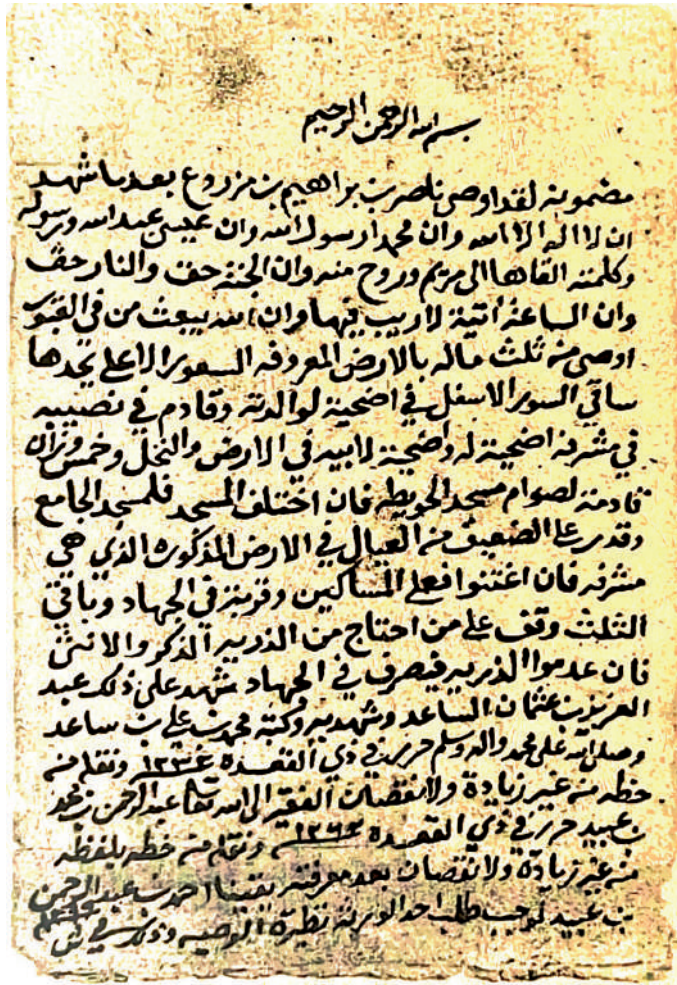 بسم الله الرحمن الرحيم
مضمونه لقد اوصى ناصر بن براهيم بن مزروع بعد ما شهد
ان لا اله الا الله وان محمدا رسول الله وان عيسى عبد الله ورسوله
وكلمته القاها الى مريم وروح منه وان الجنة حق والنار حق
وان الساعة اتية لا ريب فيها وان الله يبعث من في القبور
اوصى من ثلث ماله بالارض المعروفه السعوير الاعلى يحدها
ساقي السوير الاسفل في اضحية لوالدته وقادم في نصيبه
في مشرفه اضحية له واضحية لابيه في الارض والنخل وخمس وزان
قادمة لصوام مسجد الحويطه فان اختلف المسجد فلمسجد الجامع
وقدر على الضعيف من العيال في الارض المذكوره الذي هي
مشرفه فان اغتنوا فعلى المساكين وقربة في الجهاد وباقي
الثلث وقف على من احتاج من الذريه الذكر والانثى
فان عدموا الذريه فيصرف في الجهاد شهد على ذلك عبد
العزيز بن عثمان الساعد وشهد به وكتبه محمد بن علي بن ساعد
وصلى الله على محمد واله وسلم حرر في ذي القعدة ١٣٣٤ ونقله من
خطه من غير زيادة ولا نقصان الفقير الى الله تعالى عبد الرحمن بن محمد
بن عبيد حرر في ذي القعدة ١٣٦٣ ونقله من خطه بلفظه
من غير زيادة ولا نقصان بعد معرفته يقينا احمد بن عبد الرحمن
بن عبيد لموجب طلب احد الورثة نظيرة الوصيه وذلك في